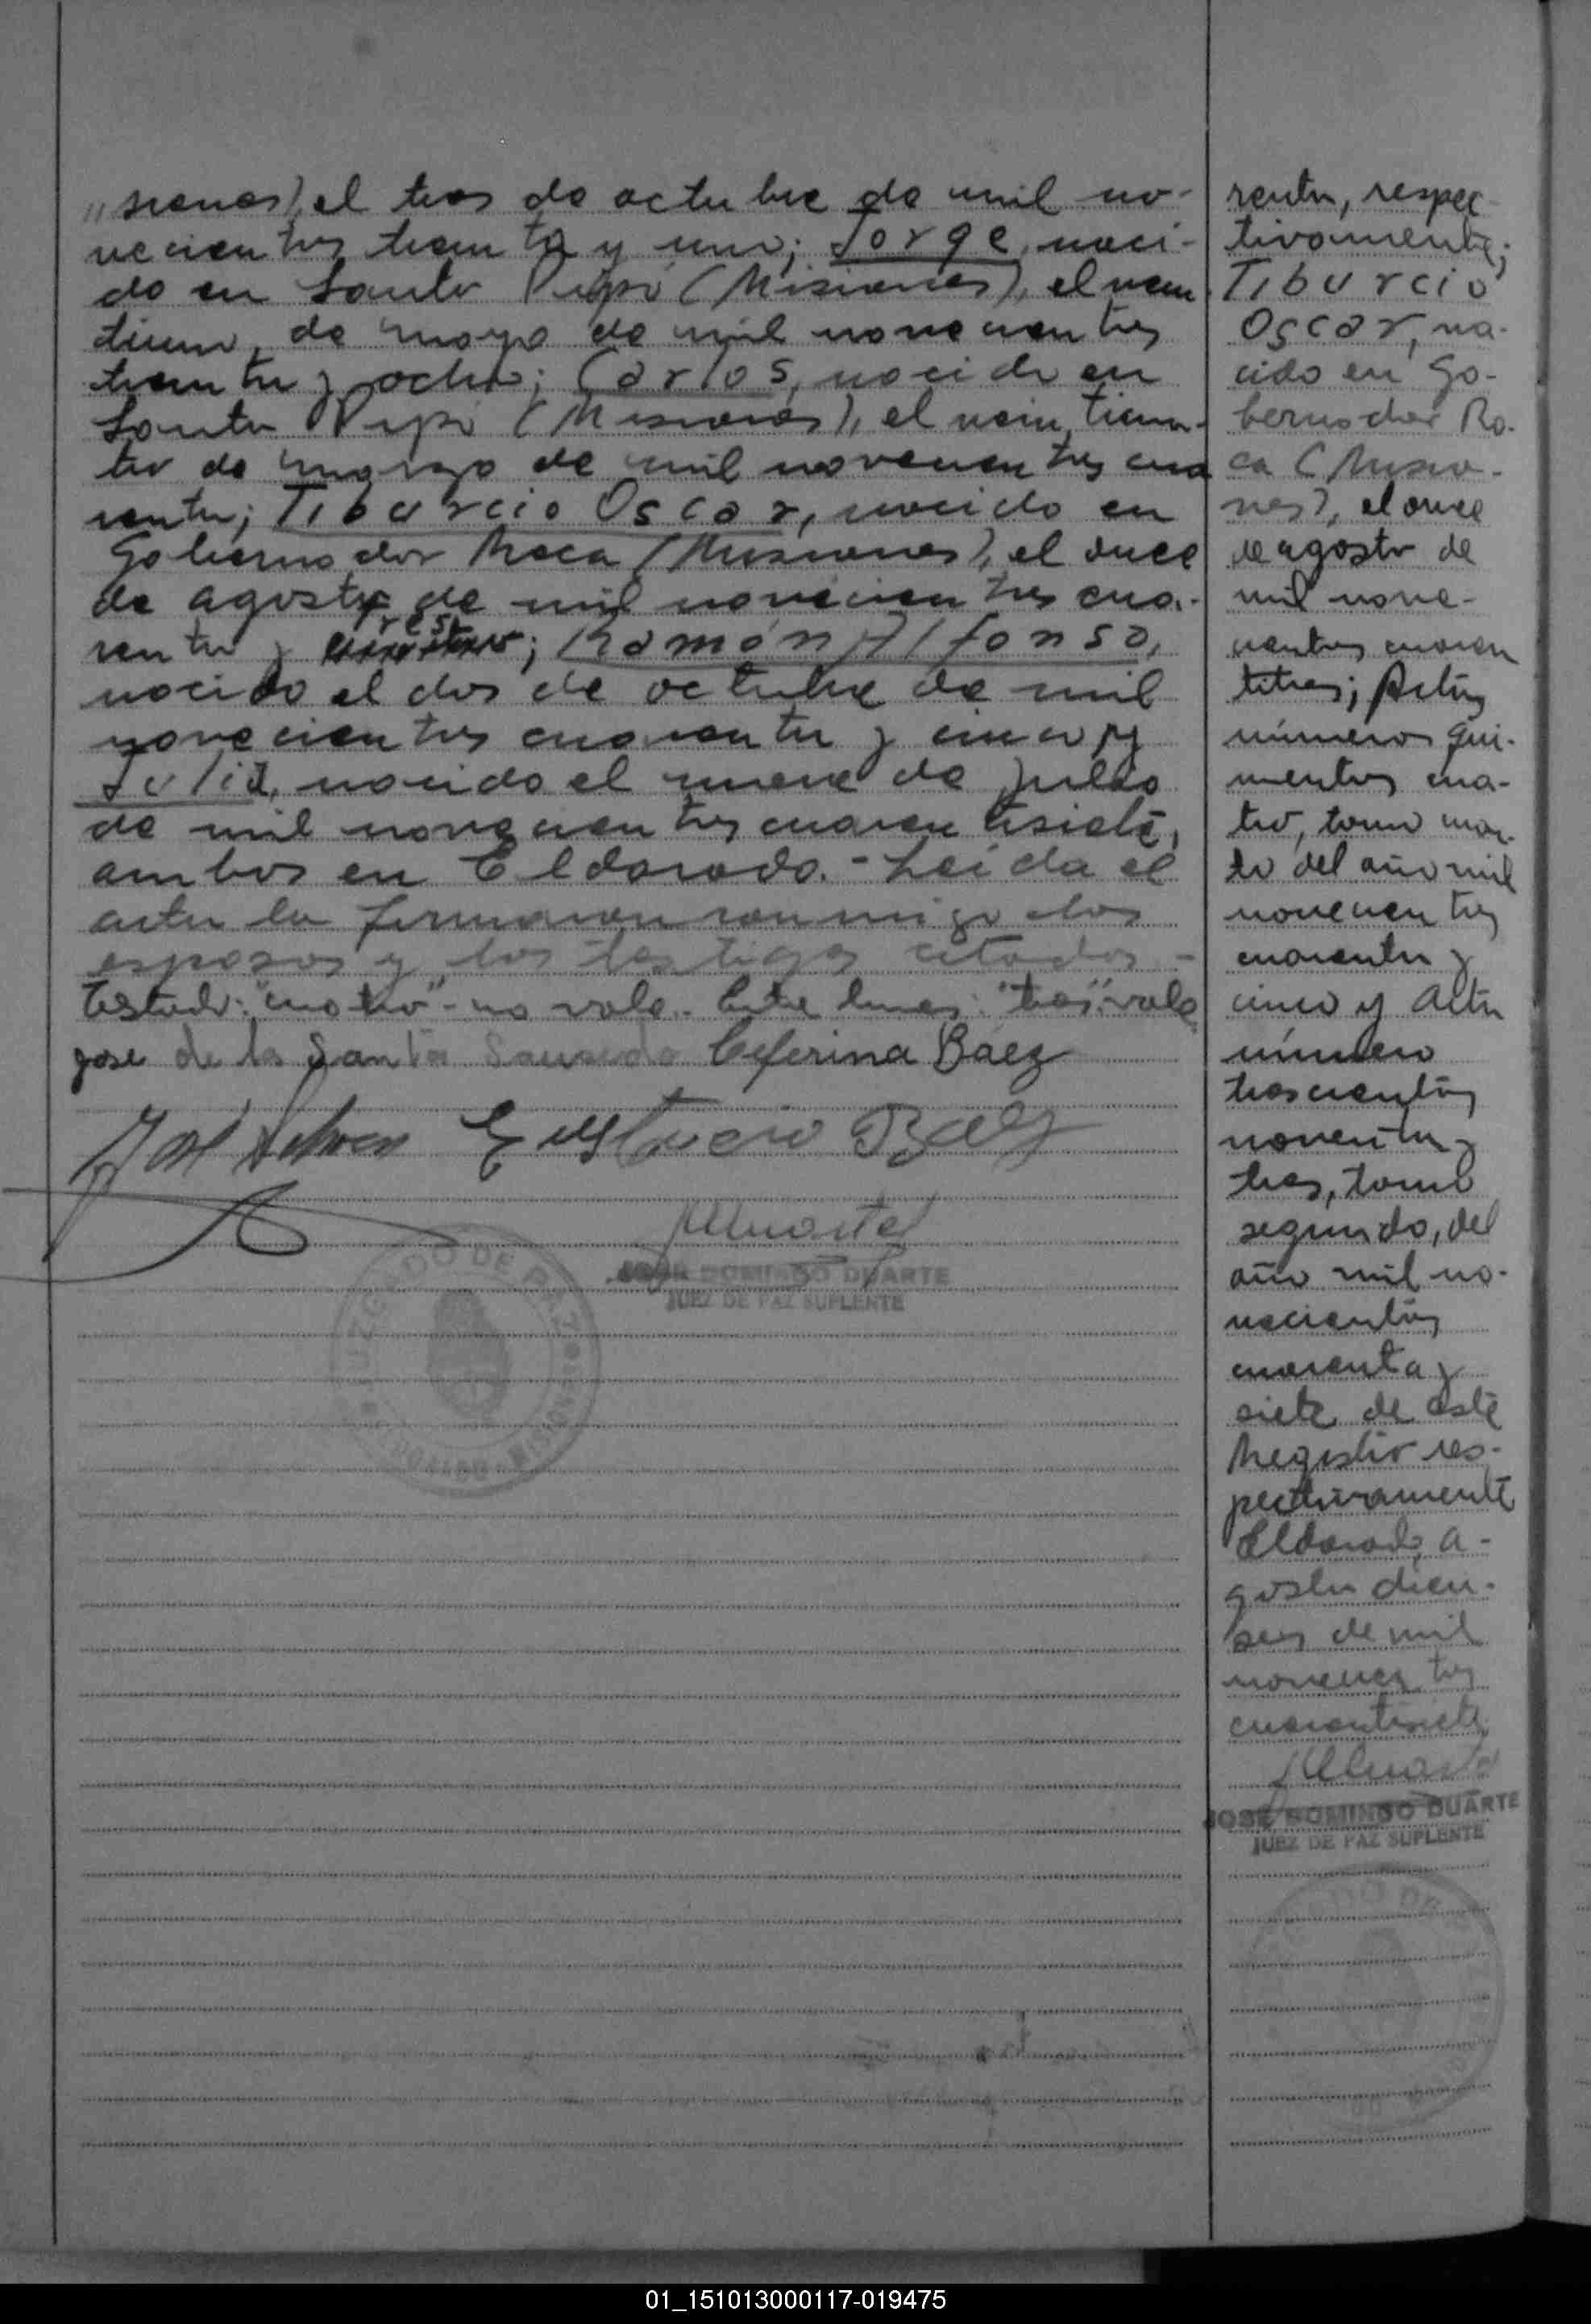 "siones), el tres de octubre de mil no-
vecientos treinta y uno; Jorge, naci-
do en Santo Pipó (Misiones), el vein
tiuno de mayo de mil novecientos
treinta y ocho; Carlos, nacido en
Santo Pipó (Misiones), el veinticua-
tro de marzo de mil novecientos cua
renta; Tiburcio Oscar, nacido en
Gobernador Roca (Misiones), el once
de agosto de mil novecientos cua-
renta y tres; Ramón Alfonso,
nacido el dos de octubre de mil
novecientos cuarenta y cinco y
Julia, nacida el nueve de julio
de mil novecientos cuarentisiete,
ambos en Eldorado.- Leida el
acta la firmaron conmigo los
esposos y los testigos citados.-
Testado: "cuatro" - no vale. Entre lineas: "tres": vale
Jose de la Santa Saucedo Ceferina Báez
Eustacio Baez
JUZGADO DE PAZ
JOSE DOMINGO DUARTE
JUEZ DE PAZ SUPLENTE
renta, respec-
tivamente;
Tiburcio
Oscar, na-
cido en Go-
bernador Ro-
ca (Misio-
nes), el once
de agosto de
mil nove-
cientos cuaren
titres; Actas
números qui-
nientos cua-
tro, tomo
del año mil
novecientos
cuarenta y
cinco y acta
número
trescientos
noventa y
tres, tomo
segundo, del
año mil no-
vecientos
cuarenta y
siete de este
Registro res-
pectivamente
Eldorado, a-
gosto dieci-
seis de mil
novecientos
cuarentisiete
JOSE DOMINGO DUARTE
JUEZ DE PAZ SUPLENTE
01_151013000117-019475